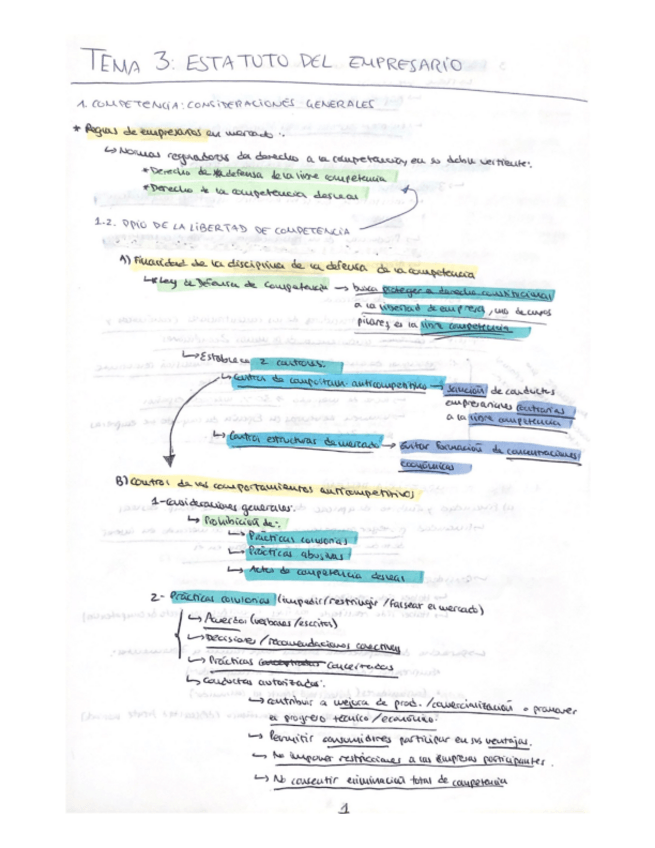 TEMA 3: ESTATUTO DEL EMPRESARIO
1. COMPETENCIA: CONSIDERACIONES GENERALES
* Reglas de empresarios en mercado:
↳ Normas reguladoras da derecho a la competencia, en su doble vertiente:
* Derecho de la defensa de la libre competencia
* Derecho de la competencia desleal
1.2. PPIO DE LA LIBERTAD DE COMPETENCIA
A) Finalidad de la disciplina de la defensa de la competencia
↳ Ley de Defensa de Competencia → busca proteger a derecho constitucional
a la libertad de empresa, uno de cuyos
pilares es la libre competencia
↳ Establece 2 controles:
↳ Control de comportam. anticompetitivos → sanción de conductas
empresariales contrarias
a la libre competencia
↳ Control estructuras de mercado → Evitar formación de concentraciones
económicas
B) Control de los comportamientos anticompetitivos
1- Consideraciones generales:
↳ Prohibición de:
↳ Prácticas colusorias
↳ Prácticas abusivas
↳ Actos de competencia desleal
2- Prácticas colusorias (impedir/restringir/falsear el mercado)
↳ Acuerdos (verbales/escritos)
↳ Decisiones/recomendaciones colectivas
↳ Prácticas concertadas
↳ Conductas autorizadas:
↳ contribuir a mejora de prod./comercialización o promover
el progreso técnico/económico.
↳ Permitir consumidores participar en sus ventajas.
↳ No imponer restricciones a las empresas participantes.
↳ No consentir eliminación total de competencia
1